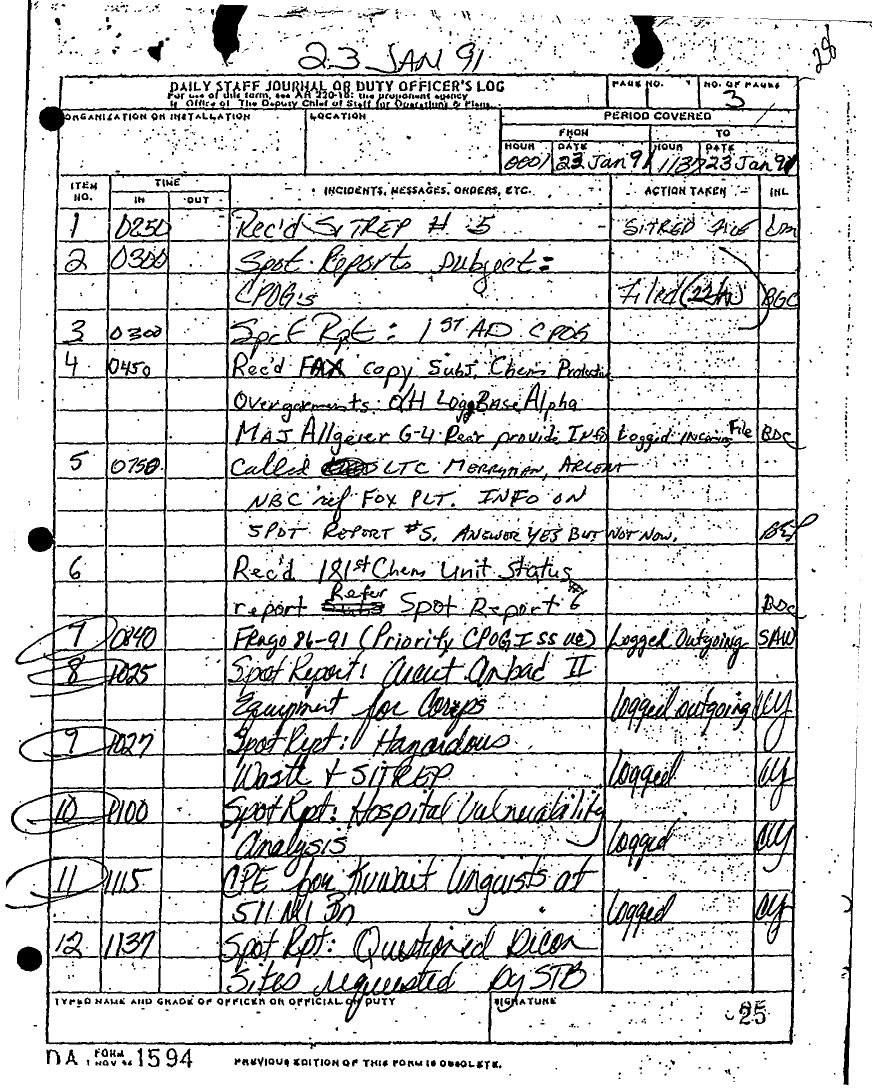 23 JAN 91
28
DAILY STAFF JOURNAL OR DUTY OFFICER'S LOG
For use of this form, see AR 220-15; the proponent agency
is Office of The Deputy Chief of Staff for Operations & Plans.
PAGE NO.
NO. OF PAGES
3
ORGANIZATION OR INSTALLATION
LOCATION
PERIOD COVERED
FROM TO
HOUR DATE HOUR DATE
0001 23 Jan 91 1137 23 Jan 91
ITEM NO. TIME IN OUT INCIDENTS, MESSAGES, ORDERS, ETC. ACTION TAKEN INL
1 0250 Rec'd SITREP # 5
2 0300 Spot Reports Subject:
CPOG's Filed BGC
3 0300 Spot Rpt: 1ST AD CPOG
4 0450 Rec'd FAX copy Subj. Chem Protective
Overgarments O/H Log Base Alpha
MAJ Allgeier G-4 Rear provide INFO Logged incoming File BDC
5 0750 Called LTC MERRYMAN, ARCENT
NBC ref FOX PLT. INFO ON
SPOT REPORT #5. ANSWER YES BUT NOT NOW.
6 Rec'd 181st Chem Unit Status
report Refer Spot Report #6 BDC
7 0840 Frago 86-91 (Priority CPOG Issue) Logged Outgoing SAW
8 1025 Spot Report: Anbad II
Equipment for Corps logged outgoing
9 1027 Spot Rpt: Hazardous
Waste + SITREP logged
10 1100 Spot Rpt: Hospital Vulnerability
Analysis logged
11 1115 CPE for Kuwait linguists at
511 MI Bn logged
12 1137 Spot Rpt: Questioned Decon
Sites requested by STB
TYPED NAME AND GRADE OF OFFICER OR OFFICIAL ON DUTY
SIGNATURE
25
DA FORM 1594
PREVIOUS EDITION OF THIS FORM IS OBSOLETE.